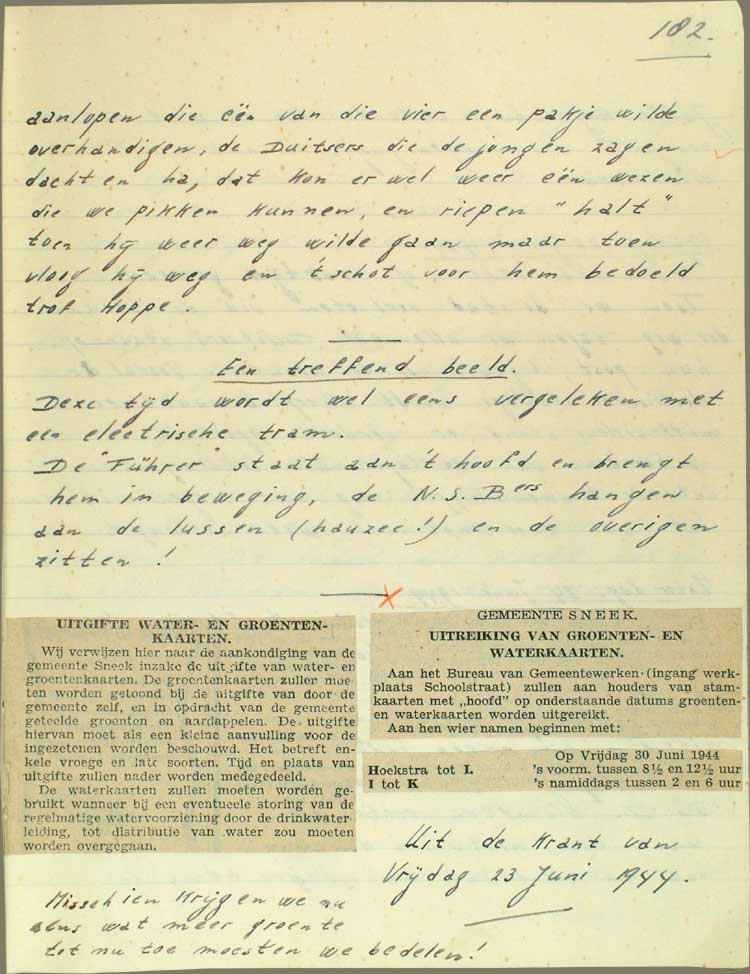 182.
aanlopen die eën van die vier een pakje wilde
overhandigen, de Duitsers die de jongen zagen
dachten ha, dat kon er wel weer eën wezen
die we pikken kunnen, en riepen "halt"
toen hij weer weg wilde gaan maar toen
vloog hij weg en 't schot voor hem bedoeld
trof Hoppe.
Een treffend beeld.
Deze tijd wordt wel eens vergeleken met
een electrische tram.
De "Führer" staat aan 't hoofd en brengt
hem in beweging, de N.S.Bers hangen
aan de lussen (hauzee!) en de overigen
zitten!
UITGIFTE WATER- EN GROENTEN-
KAARTEN.
Wij verwijzen hier naar de aankondiging van de
gemeente Sneek inzake de uitgifte van water- en
groentenkaarten. De groentenkaarten zullen moe-
ten worden getoond bij de uitgifte van door de
gemeente zelf, en in opdracht van de gemeente
geteelde groenten en aardappelen. De uitgifte
hiervan moet als een kleine aanvulling voor de
ingezetenen worden beschouwd. Het betreft en-
kele vroege en late soorten. Tijd en plaats van
uitgifte zullen nader worden medegedeeld.
De waterkaarten zullen moeten worden ge-
bruikt wanneer bij een eventueele storing van de
regelmatige watervoorziening door de drinkwater-
leiding, tot distributie van water zou moeten
worden overgegaan.
GEMEENTE SNEEK.
UITREIKING VAN GROENTEN- EN
WATERKAARTEN.
Aan het Bureau van Gemeentewerken (ingang werk-
plaats Schoolstraat) zullen aan houders van stam-
kaarten met „hoofd" op onderstaande datums groenten-
en waterkaarten worden uitgereikt.
Aan hen wier namen beginnen met:
Op Vrijdag 30 Juni 1944
Hoekstra tot I. 's voorm. tussen 8½ en 12½ uur
I tot K 's namiddags tussen 2 en 6 uur
Uit de Krant van
Vrijdag 23 Juni 1944.
Misschien krijgen we nu
eens wat meer groente
tot nu toe moesten we bedelen!